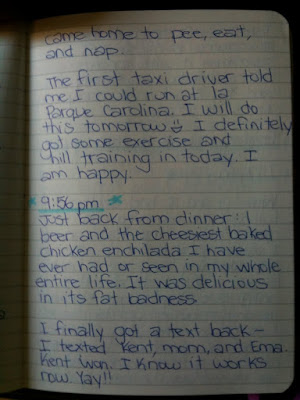 came home to pee, eat,
and nap.
The first taxi driver told
me I could run at la
Parque Carolina. I will do
this tomorrow. I definitely
got some exercise and
hill training in today. I
am happy.
* 9:56 pm *
Just back from dinner: 1
beer and the cheesiest baked
chicken enchilada I have
ever had or seen in my whole
entire life. It was delicious
in its fat badness.
I finally got a text back -
I texted Kent, mom, and Ema.
Kent won. I know it works
now. Yay!!